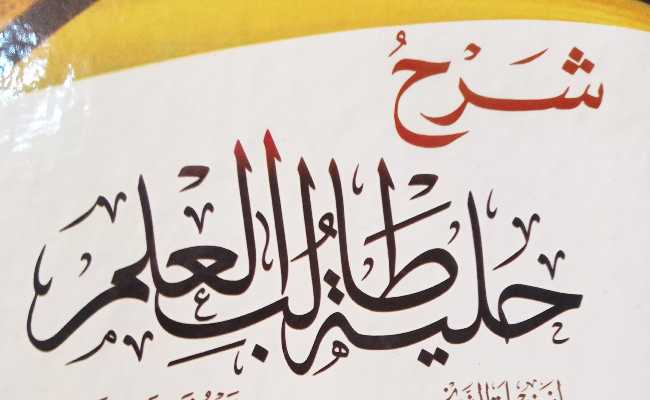 شَرْحُ
حلية طالب العلم